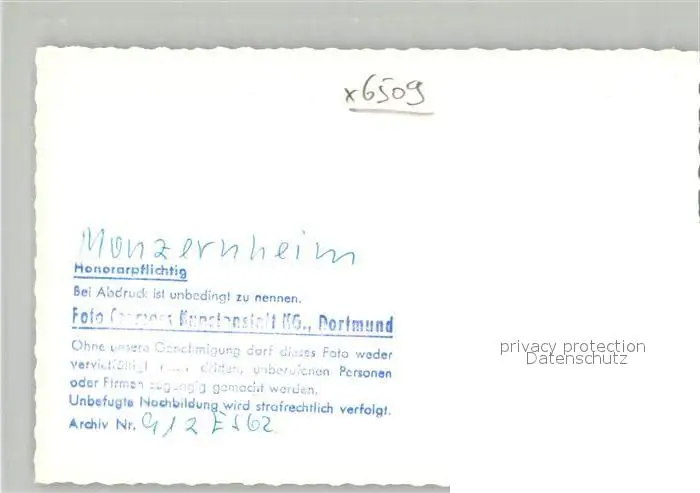 x6509
Monzernheim
Honorarpflichtig
Bei Abdruck ist unbedingt zu nennen.
Foto Kunstanstalt KG., Dortmund
Ohne unsere Genehmigung darf dieses Foto weder
vervielfältigt noch dritten, unberufenen Personen
oder Firmen zugängig gemacht werden.
Unbefugte Nachbildung wird strafrechtlich verfolgt.
Archiv Nr.
privacy protection
Datenschutz